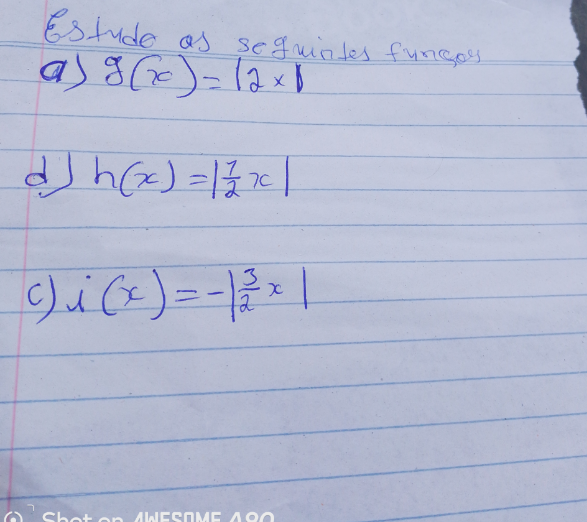 Estude as seguintes funções
a) g(x) = |2x|
d) h(x) = |7/2 x|
c) i(x) = -|3/2 x|
Shot on AWESOME A90